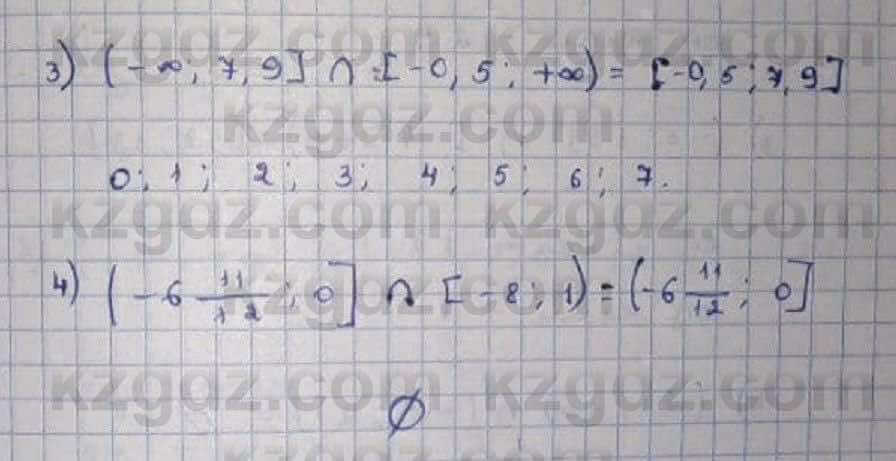 kzgdz.com kzgdz.com
3) (-∞; 7,9] ∩ [-0,5; +∞) = [-0,5; 7,9]
kzgdz.com
0; 1; 2; 3; 4; 5; 6; 7.
kzgdz.com kzgdz.com
4) (-6 11/12; 0] ∩ [-8; 1) = (-6 11/12; 0]
kzgdz.com
kzgdz.com kzgdz.com
∅
kzgdz.com